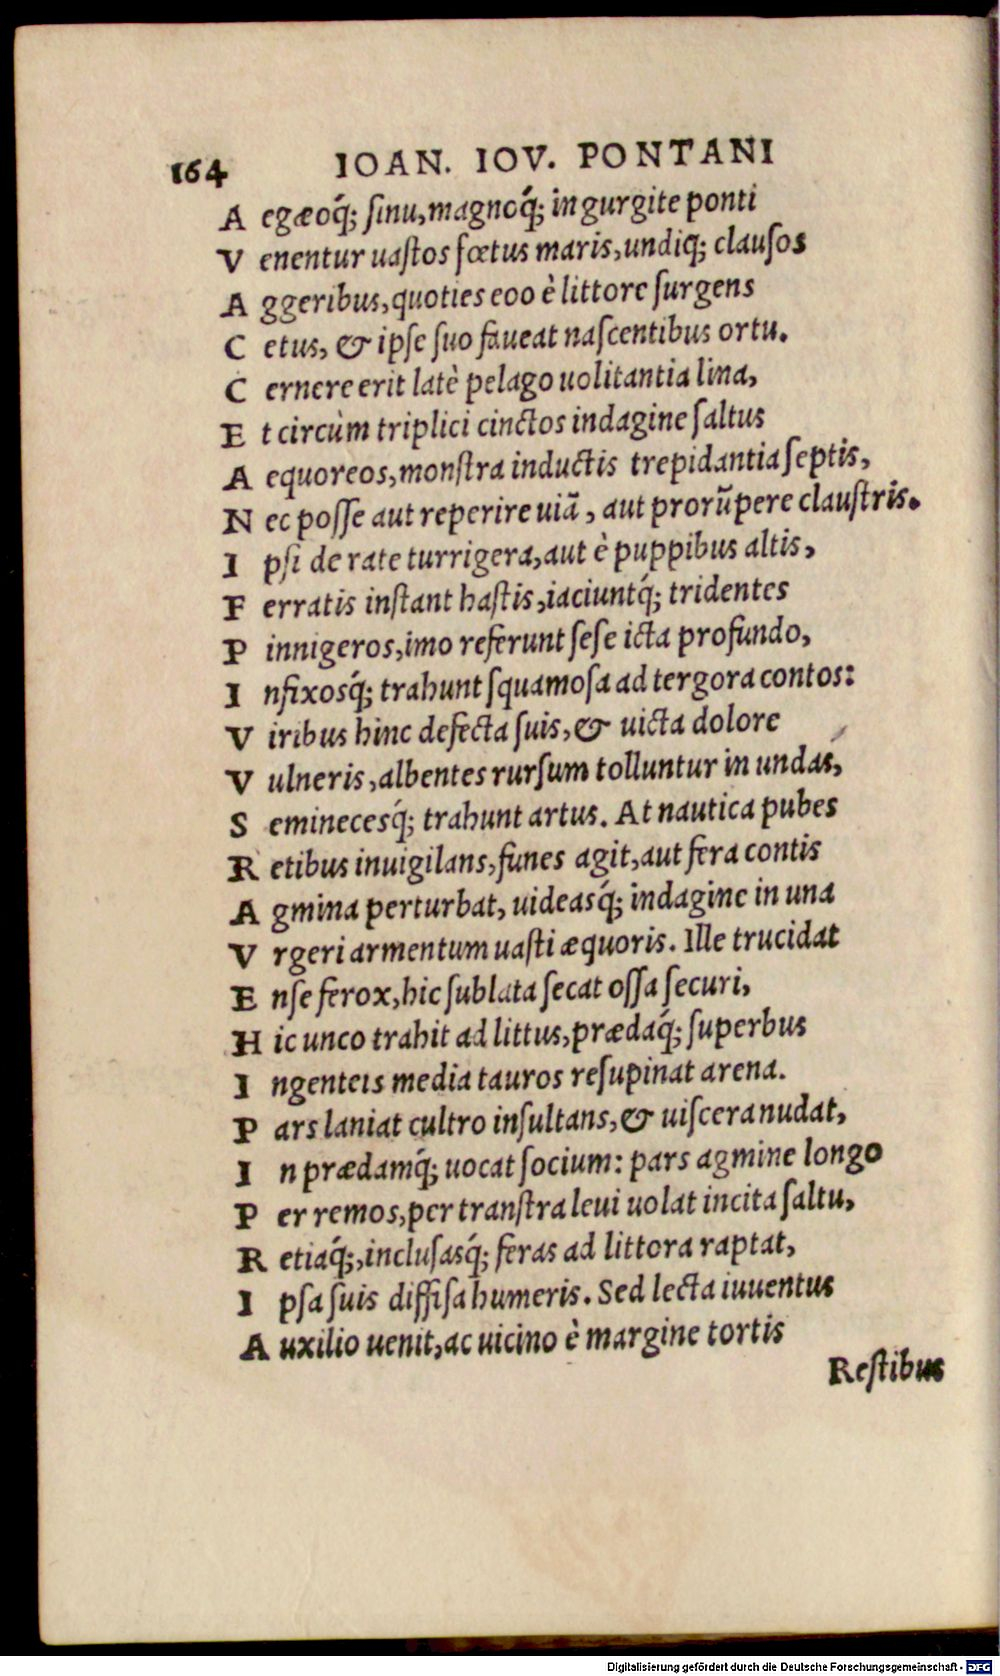 164 IOAN. IOV. PONTANI
Aegæoq́; ſinu, magnoq́; in gurgite ponti
Venentur uaſtos fœtus maris, undiq; clauſos
Aggeribus, quoties eoo è littore ſurgens
Cetus, & ipſe ſuo faueat naſcentibus ortu.
Cernere erit latè pelago uolitantia lina,
Et circùm triplici cinctos indagine ſaltus
Aequoreos, monſtra inductis trepidantia ſeptis,
Nec poſſe aut reperire uiã, aut prorũpere clauſtris.
Ipſi de rate turrigera, aut è puppibus altis,
Ferratis inſtant haſtis, iaciuntq́; tridentes
Pinnigeros, imo referunt ſeſe icta profundo,
Infixosq́; trahunt ſquamoſa ad tergora contos:
Viribus hinc defecta ſuis, & uicta dolore
Vulneris, albentes rurſum tolluntur in undas,
Seminecesq́; trahunt artus. At nautica pubes
Retibus inuigilans, funes agit, aut fera contis
Agmina perturbat, uideasq́; indagine in una
Vrgeri armentum uaſti æquoris. Ille trucidat
Enſe ferox, hic ſublata ſecat oſſa ſecuri,
Hic unco trahit ad littus, prædaq́; ſuperbus
Ingenteis media tauros reſupinat arena.
Pars laniat cultro inſultans, & uiſcera nudat,
In prædamq́; uocat ſocium: pars agmine longo
Per remos, per tranſtra leui uolat incita ſaltu,
Retiaq́;, incluſasq́; feras ad littora raptat,
Ipſa ſuis diffiſa humeris. Sed lecta iuuentus
Auxilio uenit, ac uicino è margine tortis
Reſtibus
Digitalisierung gefördert durch die Deutsche Forschungsgemeinschaft - DFG